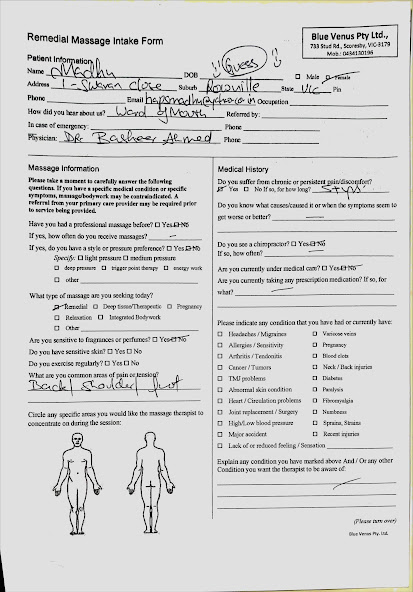 Remedial Massage Intake Form
Blue Venus Pty Ltd.,
733 Stud Rd., Scoresby, VIC-3179
Mob.: 0434130196
Patient Information
Name Madhu DOB (Guess) ☐ Male ☑ Female
Address 1- Swaran close Suburb Rowville State VIC Pin
Phone Email Occupation
How did you hear about us? Word of Mouth Referred by:
In case of emergency: Phone
Physician: DR Rasheer Ahmed Phone
Massage Information
Please take a moment to carefully answer the following
questions. If you have a specific medical condition or specific
symptoms, massage/bodywork may be contraindicated. A
referral from your primary care provider may be required prior
to service being provided.
Have you had a professional massage before? ☐ Yes ☑ No
If yes, how often do you receive massages?
If yes, do you have a style or pressure preference? ☐ Yes ☑ No
Specify: ☐ light pressure ☐ medium pressure
☐ deep pressure ☐ trigger point therapy ☐ energy work
☐ other
What type of massage are you seeking today?
☑ Remedial ☐ Deep tissue/Therapeutic ☐ Pregnancy
☐ Relaxation ☐ Integrated Bodywork
☐ Other
Are you sensitive to fragrances or perfumes? ☐ Yes ☑ No
Do you have sensitive skin? ☐ Yes ☐ No
Do you exercise regularly? ☐ Yes ☐ No
What are you common areas of pain or tension?
Back/ Shoulder/ foot
Circle any specific areas you would like the massage therapist to
concentrate on during the session:
Medical History
Do you suffer from chronic or persistent pain/discomfort?
☑ Yes ☐ No If so, for how long? 5 tyrs
Do you know what causes/caused it or when the symptoms seem to
get worse or better?
Do you see a chiropractor? ☐ Yes ☑ No
If so, how often?
Are you currently under medical care? ☐ Yes ☑ No
Are you currently taking any prescription medication? If so, for
what?
Please indicate any condition that you have had or currently have:
☐ Headaches / Migraines ☐ Varicose veins
☐ Allergies / Sensitivity ☐ Pregnancy
☐ Arthritis / Tendonitis ☐ Blood clots
☐ Cancer / Tumors ☐ Neck / Back injuries
☐ TMJ problems ☐ Diabetes
☐ Abnormal skin condition ☐ Paralysis
☐ Heart / Circulation problems ☐ Fibromyalgia
☐ Joint replacement / Surgery ☐ Numbness
☐ High/Low blood pressure ☐ Sprains, Strains
☐ Major accident ☐ Recent injuries
☐ Lack of or reduced feeling / Sensation
Explain any condition you have marked above And / Or any other
Condition you want the therapist to be aware of:
(Please turn over)
Blue Venus Pty. Ltd.